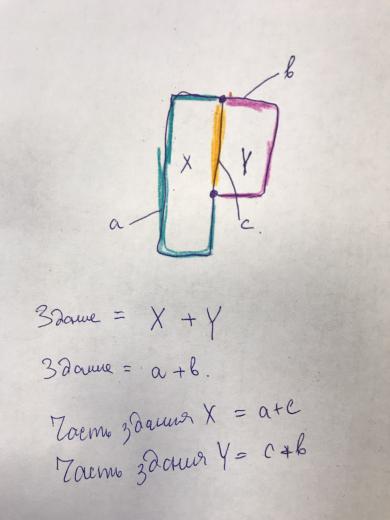 b
X Y
a c.
Здание = X + Y
Здание = a + b.
Часть здания X = a+c
Часть здания Y = c+b